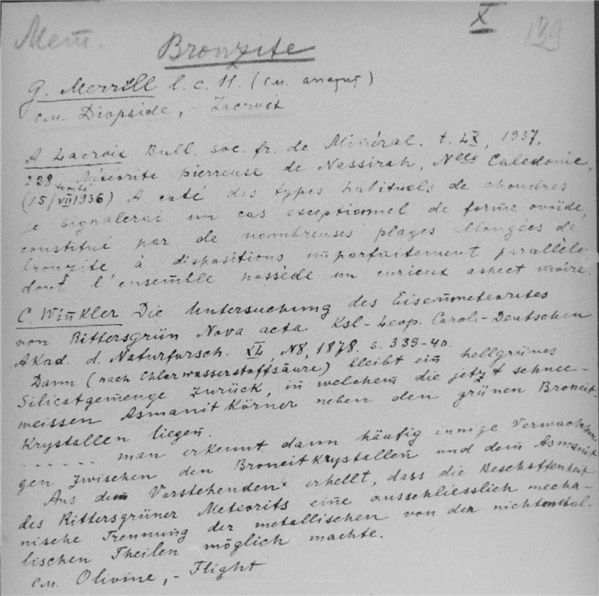 Мет. X 139
Bronzite
G. Merrill l. c. 11. (см.
см. Diopside, - Lacroix
A Lacroix Bull. soc. fr. de Minéral. t. LX, 1937,
228 Météorite pierreuse de Nassirah, Nlle Calédonie,
(15/VII 1936) tombée A coté des types habituels de chondres
je signalerai un cas exceptionnel de forme ovoïde,
constitué par de nombreuses plages allongées de
bronzite à dispositions imparfaitement parallèle
dont l'ensemble possède un curieux aspect moiré.
C. Winkler Die Untersuchung des Eisenmeteorites
von Rittersgrün Nova acta Ksl-Leop. Carol-Deutschen
Akad. d. Naturforsch. XL, N8, 1878. s. 339-40.
Dann (nach Chlorwasserstoffsäure) bleibt ein hellgrünes
Silicatgemenge zurück, in welchem die jetzt schnee-
weissen Asmanit Körner neben den grünen Broneit
Krystallen liegen.
...... man erkennt dann häufig innige Verwachsun
gen zwischen den Broneitkrystallen und dem Asmanit
Aus dem Vorstehenden erhellt, dass die Beschaffenheit
des Rittersgrüner Meteorits eine ausschliesslich mecha-
nische Trennung der metallischen von den nichtmetal-
lischen Theilen möglich machte.
см. Olivine, - Flight